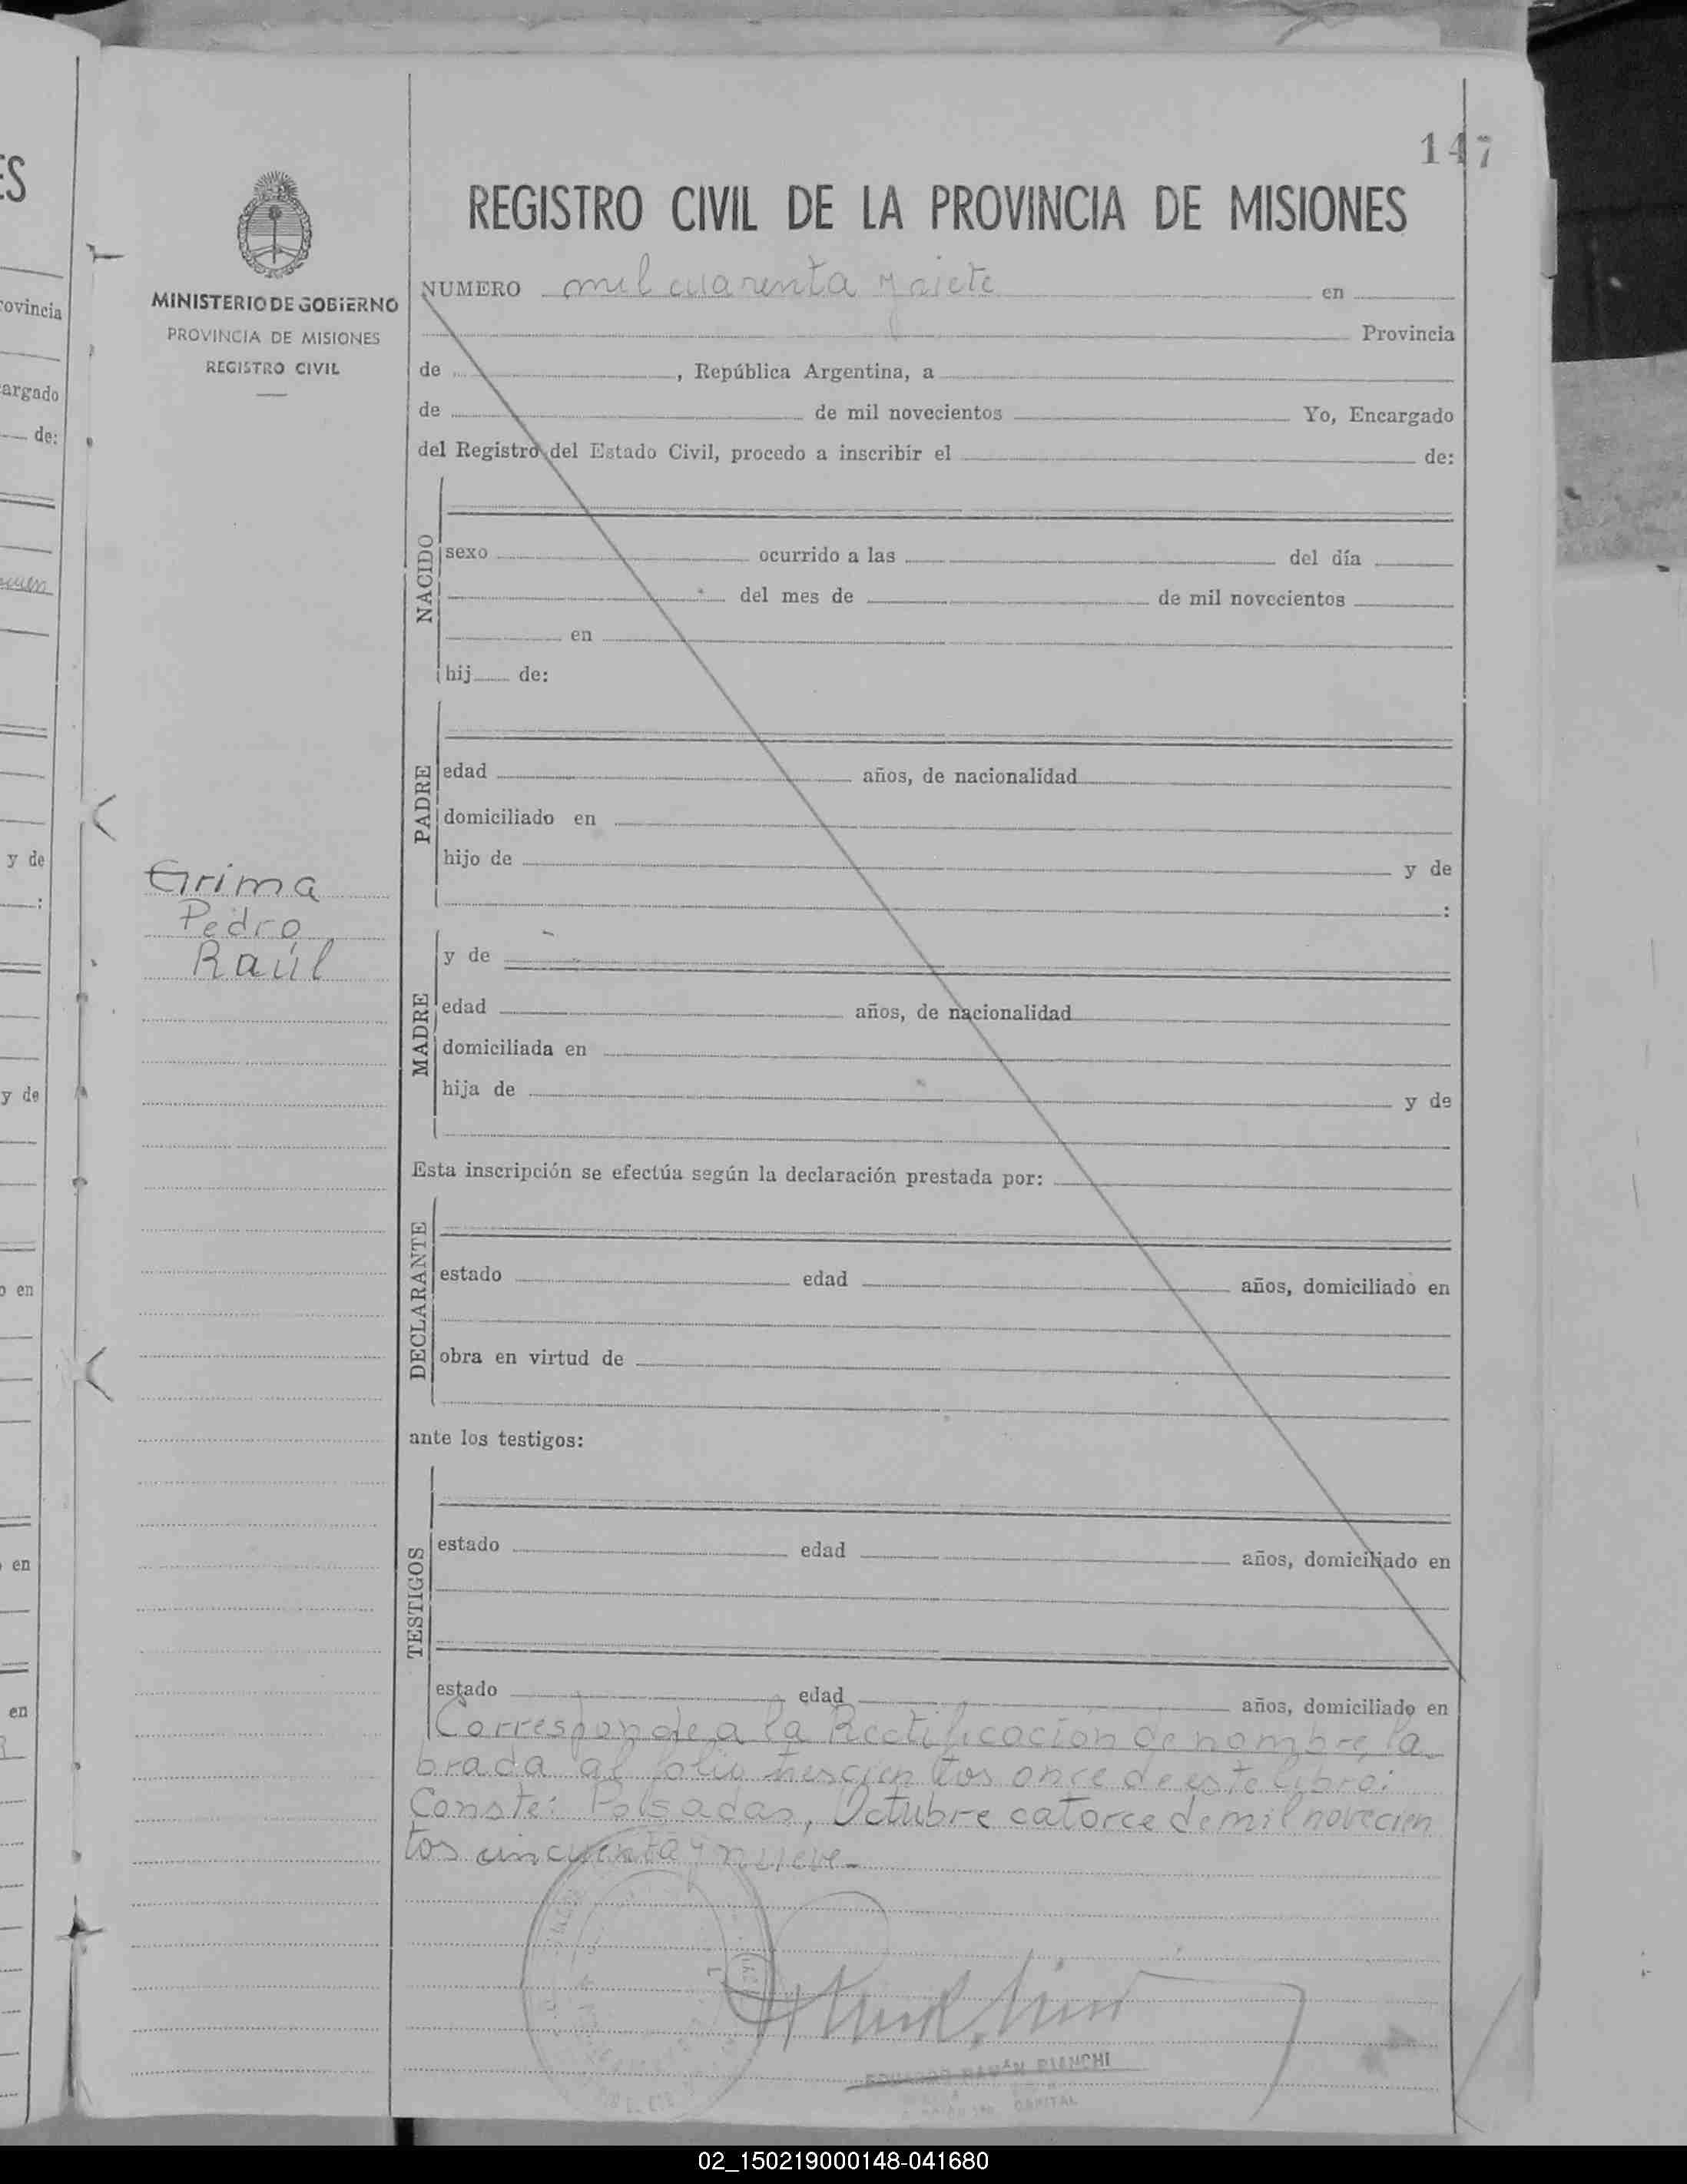 147
REGISTRO CIVIL DE LA PROVINCIA DE MISIONES
MINISTERIO DE GOBIERNO
PROVINCIA DE MISIONES
REGISTRO CIVIL
NUMERO mil cuarenta y siete en
Provincia
de , República Argentina, a
de de mil novecientos Yo, Encargado
del Registro del Estado Civil, procedo a inscribir el de:
NACIDO
sexo ocurrido a las del día
del mes de de mil novecientos
en
hij de:
PADRE
edad años, de nacionalidad
domiciliado en
hijo de y de
:
Grima
Pedro
Raúl
MADRE
y de
edad años, de nacionalidad
domiciliada en
hija de y de
Esta inscripción se efectúa según la declaración prestada por:
DECLARANTE
estado edad años, domiciliado en
obra en virtud de
ante los testigos:
TESTIGOS
estado edad años, domiciliado en
estado edad años, domiciliado en
Corresponde a la Rectificación de nombre, la
brada al folio trescientos once de este libro:
Conste: Posadas, Octubre catorce de mil novecien
tos cincuenta y nueve.-
EDUARDO RAMÓN BIANCHI
CAPITAL
ES
rovincia
argado
de:
y de
:
y de
o en
en
en
02_150219000148-041680